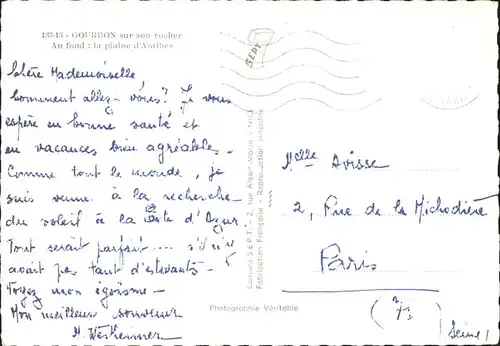 13343 - GOURDON sur son rocher
Au fond : la plaine d'Antibes
SEPT
Chère Mademoiselle
Comment allez-vous? Je vous
espère en bonne santé et
en vacances bien agréables.
Comme tout le monde, je
suis venue à la recherche
du soleil à la Côte d'Azur
Tout serait parfait .... s'il n'y
avait pas tant d'estivants -
Voyez mon égoïsme -
Mon meilleur souvenir
Editions S.E.P.T. - 2, rue - NICE
Fabrication Française - Reproduction interdite
Melle Avisse
2, Rue de la Michodière
Paris
(Seine)
Photographie Véritable